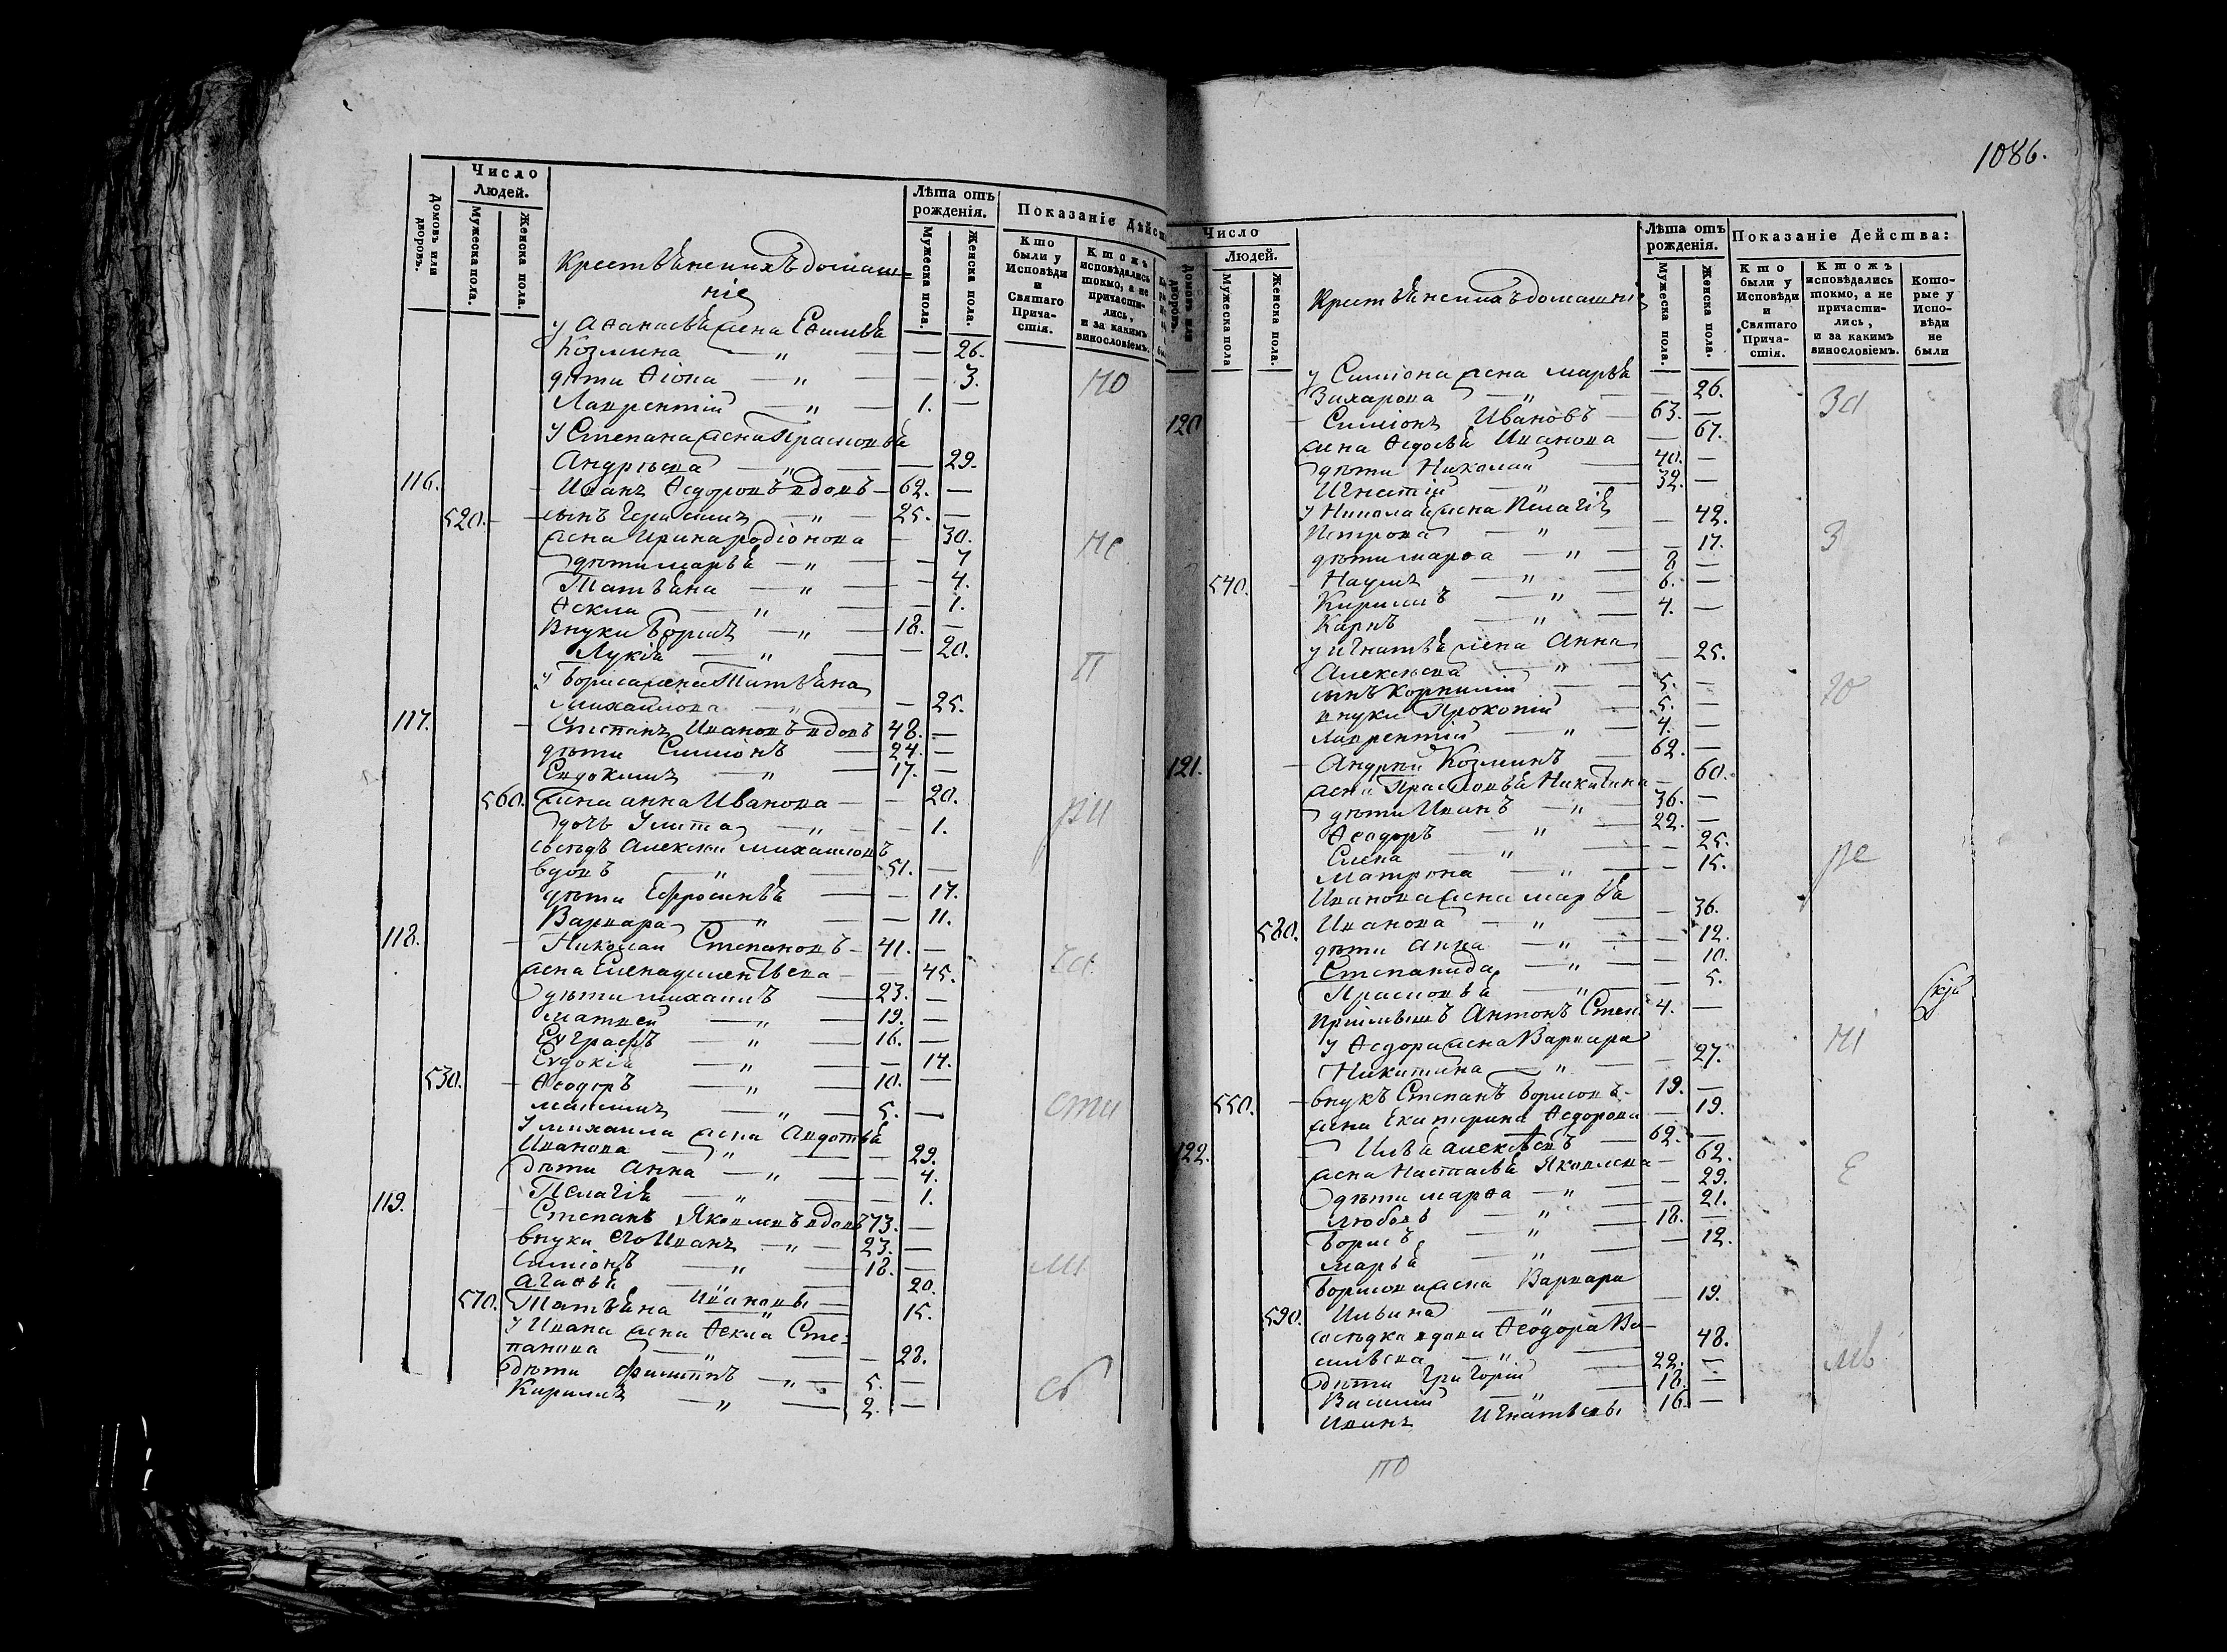 Число Людей.
Домовъ или дворовъ.
Мужеска пола.
Женска пола.
Лѣта отъ рожденія.
Мужеска пола.
Женска пола.
Показаніе Дѣйст
Кто были у Исповѣди и Святаго Прича-стія.
Ктожъ исповѣдались токмо, а не причасти-лись, и за какимъ винословіемъ.
Крестьянскихъ домаш=
ніе
у Аѳанасья жена Софья
Козмина — „ — — 26.
дѣти Ѳіона — „ — — 3.
Лаврентій — „ — 1. —
но
у Степана жена Прасковья
Андрѣева — „ — — 29.
116. Иванъ Ѳедоровъ вдовъ — 62. —
520. — сынъ Герасимъ — „ — 25. —
жена Ирина родіонова — 30.
дѣти марья — „ — — 7
Татьяна — „ — — 4.
Ѳекла — „ — — 1.
Внуки Борисъ — „ — 18. —
Лукія — „ — — 20.
п
у Бориса жена Татьяна
Михайлова — „ — — 25.
117. — Степанъ Ивановъ вдовъ 48. —
дѣти Симіонъ — 24. —
Евдокимъ — „ — 17. —
560. жена анна Иванова — — 20.
дочь Улита — „ — — 1.
ри
сосѣдъ Алексѣй михайловъ
вдовъ — „ — 51. —
дѣти Ефросинья — — 17.
Варвара — „ — — 11.
118. — Николай Степановъ — 41. —
жена Елена дементьева — — 45.
дѣти михаилъ — 23. —
матвей — „ — 19. —
Евграфъ — „ — 16. —
Евдокія — „ — — 14.
530. — Ѳеодоръ — „ — 10. —
максимъ — „ — 5. —
сти
у михаила жена Авдотья
Иванова — „ — — 29.
дѣти Анна — „ — — 4.
Пелагія — „ — — 1.
119. — Степанъ Яковлевъ вдовъ 73. —
внуки его Иванъ — „ — 23. —
Симіонъ — „ — 18. —
Агафья — — 20.
570. Татьяна Ивановы — 15.
у Ивана жена Ѳекла Сте=
панова — „ — — 28.
дѣти филиппъ — „ — 5. —
Кирилъ — „ — 2. —
1086.
Число Людей.
Домовъ или дворовъ.
Мужеска пола
Женска пола.
Лѣта отъ рожденія.
Мужеска пола.
Женска пола.
Показаніе Дейсmва:
Кто были у Исповѣди и Святаго Прича-стія.
Ктожъ исповѣдались токмо, а не причасти-лись, и за какимъ винословіемъ.
Кото-рые у Испо-вѣди не были
Крестьянскихъ домашніе
у Симіона жена марья
Захарова — „ — — 26.
120 — Симіонъ Ивановъ — 63. —
жена Ѳедосья Иванова — 67.
дѣти Николай — 40. —
Игнатій — „ — 32. —
у Николая жена Пелагія
Петрова — „ — 42.
дѣти марѳа — „ — — 17.
540. — Наумъ — „ — 8 —
Кирилъ — „ — 6. —
Карпъ — „ — 4. —
у Игнатья жена Анна
Алексѣева — „ — — 25.
сынъ Корнилій — 5. —
внуки Прокопій — 5. —
Лаврентій — „ — 4. —
121. — Андрей Козминъ — 62. —
жена Прасковья Никитина — 60.
дѣти Иванъ — „ 36. —
Ѳеодоръ — „ — 22. —
Елена — „ — — 25.
Матрона — „ — — 15.
Иванова жена марья
580. Иванова — „ — — 36.
дѣти Анна — „ — — 12.
Степанида — „ — — 10.
Прасковья — „ — — 5.
пріимышъ Антонъ Степ. 4. —
у Ѳедора жена Варвара
Никитина — „ — — 27.
550. — внукъ Степанъ Борисовъ — 19. —
жена Екатерина Ѳедорова — 19.
122. — Илья алексѣевъ — 62. —
жена Настасья Яковлева — 62.
дѣти марѳа — „ — — 29.
Любовь — „ — — 21.
Борисъ — „ — 18. —
марья — „ — — 12.
Борисова жена Варвара
590. Ильина — „ — — 19.
сосѣдка вдова Ѳеодора Ва-
сильева — „ — 48.
дѣти Григорій — 22. —
Василій — „ — 18. —
Иванъ Игнатьевы 16. —
по